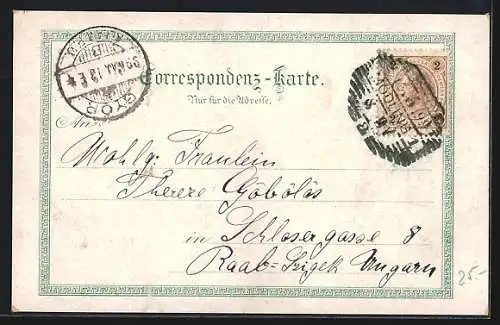 Correspondenz-Karte.
Nur für die Adresse.
An
Wohlg. Fräulein
Therese Göbölös
in Schlosergasse 8
Raab-Sziget Ungarn
GYŐR
2
25.-